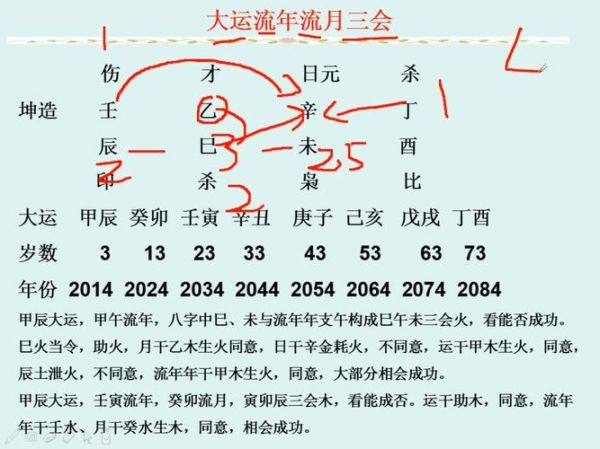 大运流年流月三会
伤 才 日元 杀
坤造 壬 乙 辛 丁
辰 巳 未 酉
印 杀 枭 比
大运 甲辰 癸卯 壬寅 辛丑 庚子 己亥 戊戌 丁酉
岁数 3 13 23 33 43 53 63 73
年份 2014 2024 2034 2044 2054 2064 2074 2084
甲辰大运，甲午流年，八字中巳、未与流年年支午构成巳午未三会火，看能否成功。
巳火当令，助火，月干乙木生火同意，日干辛金耗火，不同意，运干甲木生火，同意，
辰土泄火，不同意，流年年干甲木生火，同意，大部分相会成功。
甲辰大运，壬寅流年，癸卯流月，寅卯辰三会木，看能成否。运干助木，同意，流年
年干壬水、月干癸水生木，同意，相会成功。
1
1
2
3
2.5
2